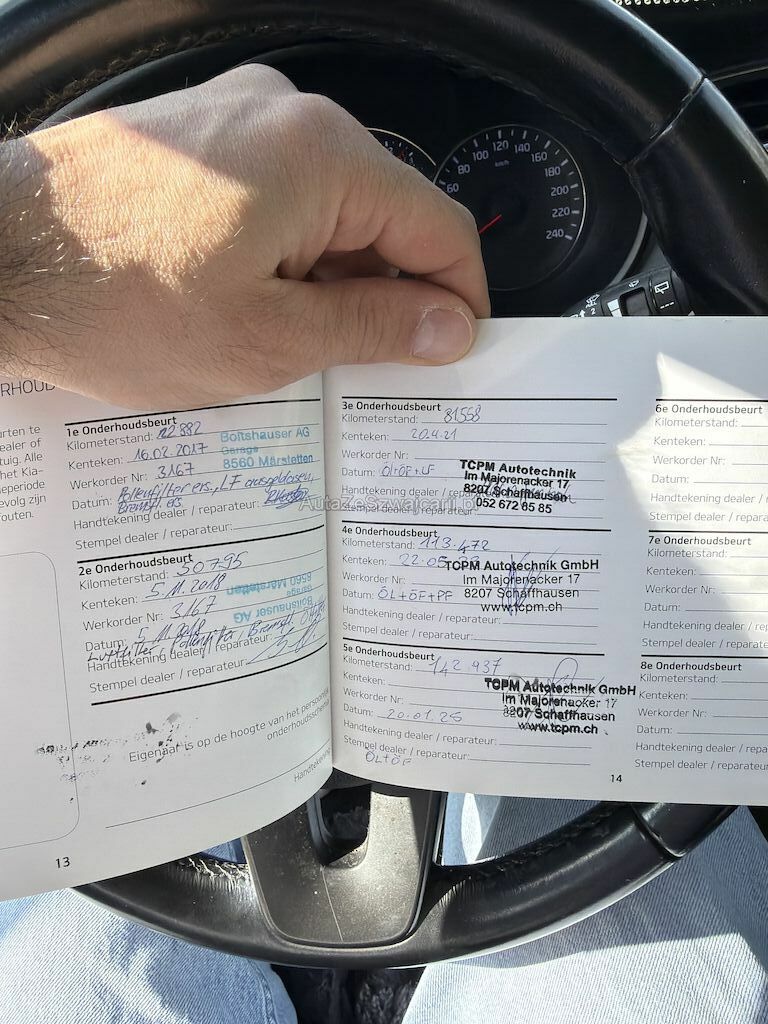 60 80 100 120 140 160 180 200 220 240
km/h
RHOUD
arten te
ealer of
tuig. Alle
het Kia-
eperiode
evolg zijn
outen.
1e Onderhoudsbeurt
Kilometerstand: 22882
Kenteken: 16.02.2017
Werkorder Nr: 3167
Datum: Pollenfilter ers., LF ausgeblasen,
Bremsfl. ers
Handtekening dealer / reparateur:
Stempel dealer / reparateur:
Boltshauser AG
Garage
8560 Märstetten
2e Onderhoudsbeurt
Kilometerstand: 50795
Kenteken: 5.11.2018
Werkorder Nr: 3167
Datum: 5.11.2018
Luftfilter, Pollenfilter, Bremsfl.
Handtekening dealer / reparateur:
Stempel dealer / reparateur:
8560 Märstetten
Garage
Boltshauser AG
Eigenaar is op de hoogte van het persoonlijk
onderhoudsschema
Handtekening
13
3e Onderhoudsbeurt
Kilometerstand: 81558
Kenteken: 20.4.21
Werkorder Nr:
Datum: Öl+ÖF+LF
Handtekening dealer / reparateur:
TCPM Autotechnik
Im Majorenacker 17
8207 Schaffhausen
052 672 85 85
AutaZeSzwajcarii.pl
4e Onderhoudsbeurt
Kilometerstand: 113.472
Kenteken: 22.05
Werkorder Nr:
Datum: ÖL+ÖF+PF
Handtekening dealer / reparateur:
Stempel dealer / reparateur:
TCPM Autotechnik GmbH
Im Majorenacker 17
8207 Schaffhausen
www.tcpm.ch
5e Onderhoudsbeurt
Kilometerstand: 142 937
Kenteken:
Werkorder Nr:
Datum: 20.01.25
Handtekening dealer / reparateur:
Stempel dealer / reparateur:
ÖL+ÖF
TCPM Autotechnik GmbH
Im Majorenacker 17
8207 Schaffhausen
www.tcpm.ch
14
6e Onderhoudsbeurt
Kilometerstand:
Kenteken:
Werkorder Nr:
Datum:
Handtekening dealer
Stempel dealer / rep
7e Onderhoudsbeurt
Kilometerstand:
Kenteken:
Werkorder Nr:
Datum:
Handtekening dealer
Stempel dealer / repa
8e Onderhoudsbeurt
Kilometerstand:
Kenteken:
Werkorder Nr:
Datum:
Handtekening dealer
Stempel dealer / repara